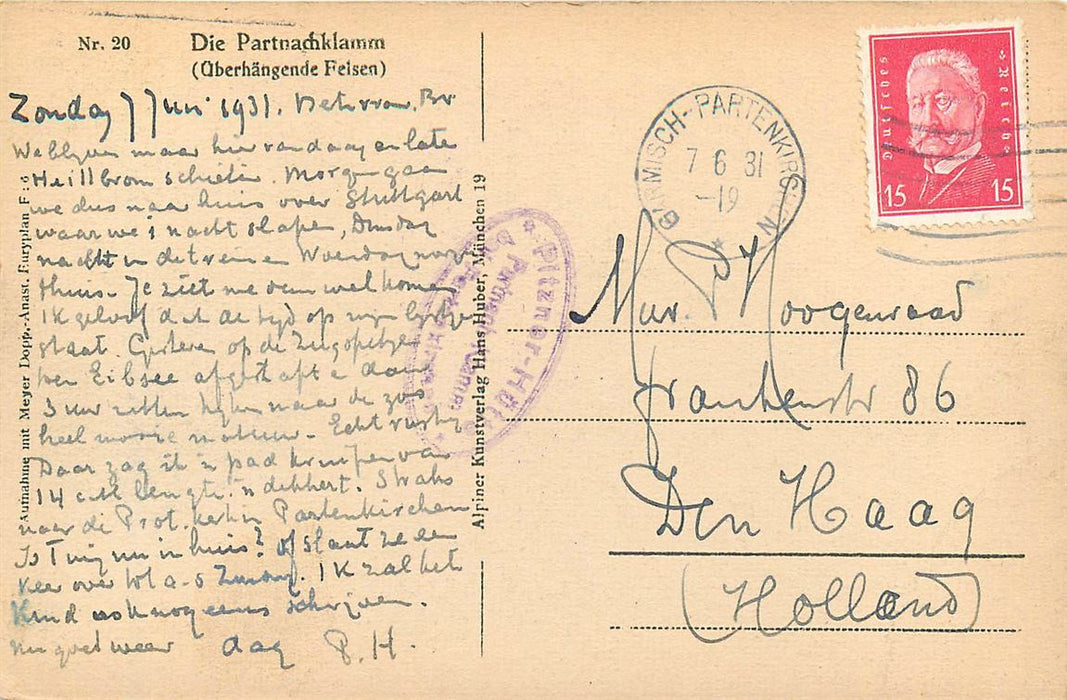 Nr. 20
Die Partnachklamm
(Überhängende Felsen)
Zonday 7 Juni 1931.
We blyven maar hier vandaag en late
Heillbronn schieten. Morgen gaan
we dus naar huis over Stuttgart
waar we 's nacht slapen, Dinsdag
nacht in de trein en Woensdag
thuis. Je ziet me dan wel komen
Ik geloof dat de tyd op myn
staat. Gisteren op de Zugspitze
Eibsee
3 uur zitten kyken naar de zoo
heel mooie natuur. Echt rustig
Daar zag ik 'n pad kruipen van
14 c.M. lengte. 'n dekkert. Straks
naar de Prot. kerk in Partenkirchen
Is Tuig nu in huis? of slaat ze een
keer over tot a.s Zondag. Ik zal het
Kind ook nog eens schrijven.
nu goed weer dag P.H.
Aufnahme mit Meyer Dopp.-Anast. Euryplan F:6
Alpiner Kunstverlag Hans Huber, München 19
Pitzner-Hütte
Partnachklamm
GARMISCH-PARTENKIRCHEN
7 6 31
-19
Deutsches Reich
15 15
Mevr. P Hoogenraad
Frankenstr 86
Den Haag
(Holland)